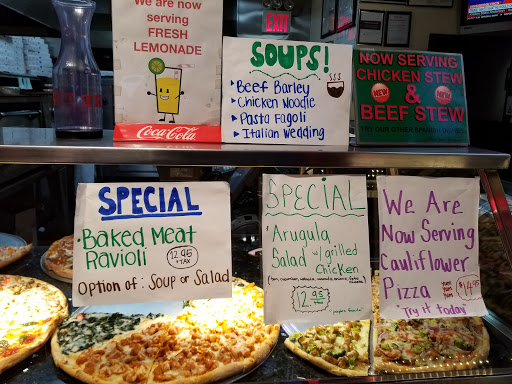 We are now
serving
FRESH
LEMONADE
Coca-Cola
EXIT
SOUPS!
Beef Barley
Chicken Noodle
Pasta Fagoli
Italian Wedding
NOW SERVING
CHICKEN STEW
NEW & NEW
BEEF STEW
TRY OUR OTHER
SPECIAL
Baked Meat
Ravioli
12.95
+TAX
Option of: Soup or Salad
SPECIAL
Arugula
Salad w/ grilled
Chicken
12.95
+TAX
We Are
Now Serving
Cauliflower
Pizza Yum Yum Yum $14.95
"Try it today"